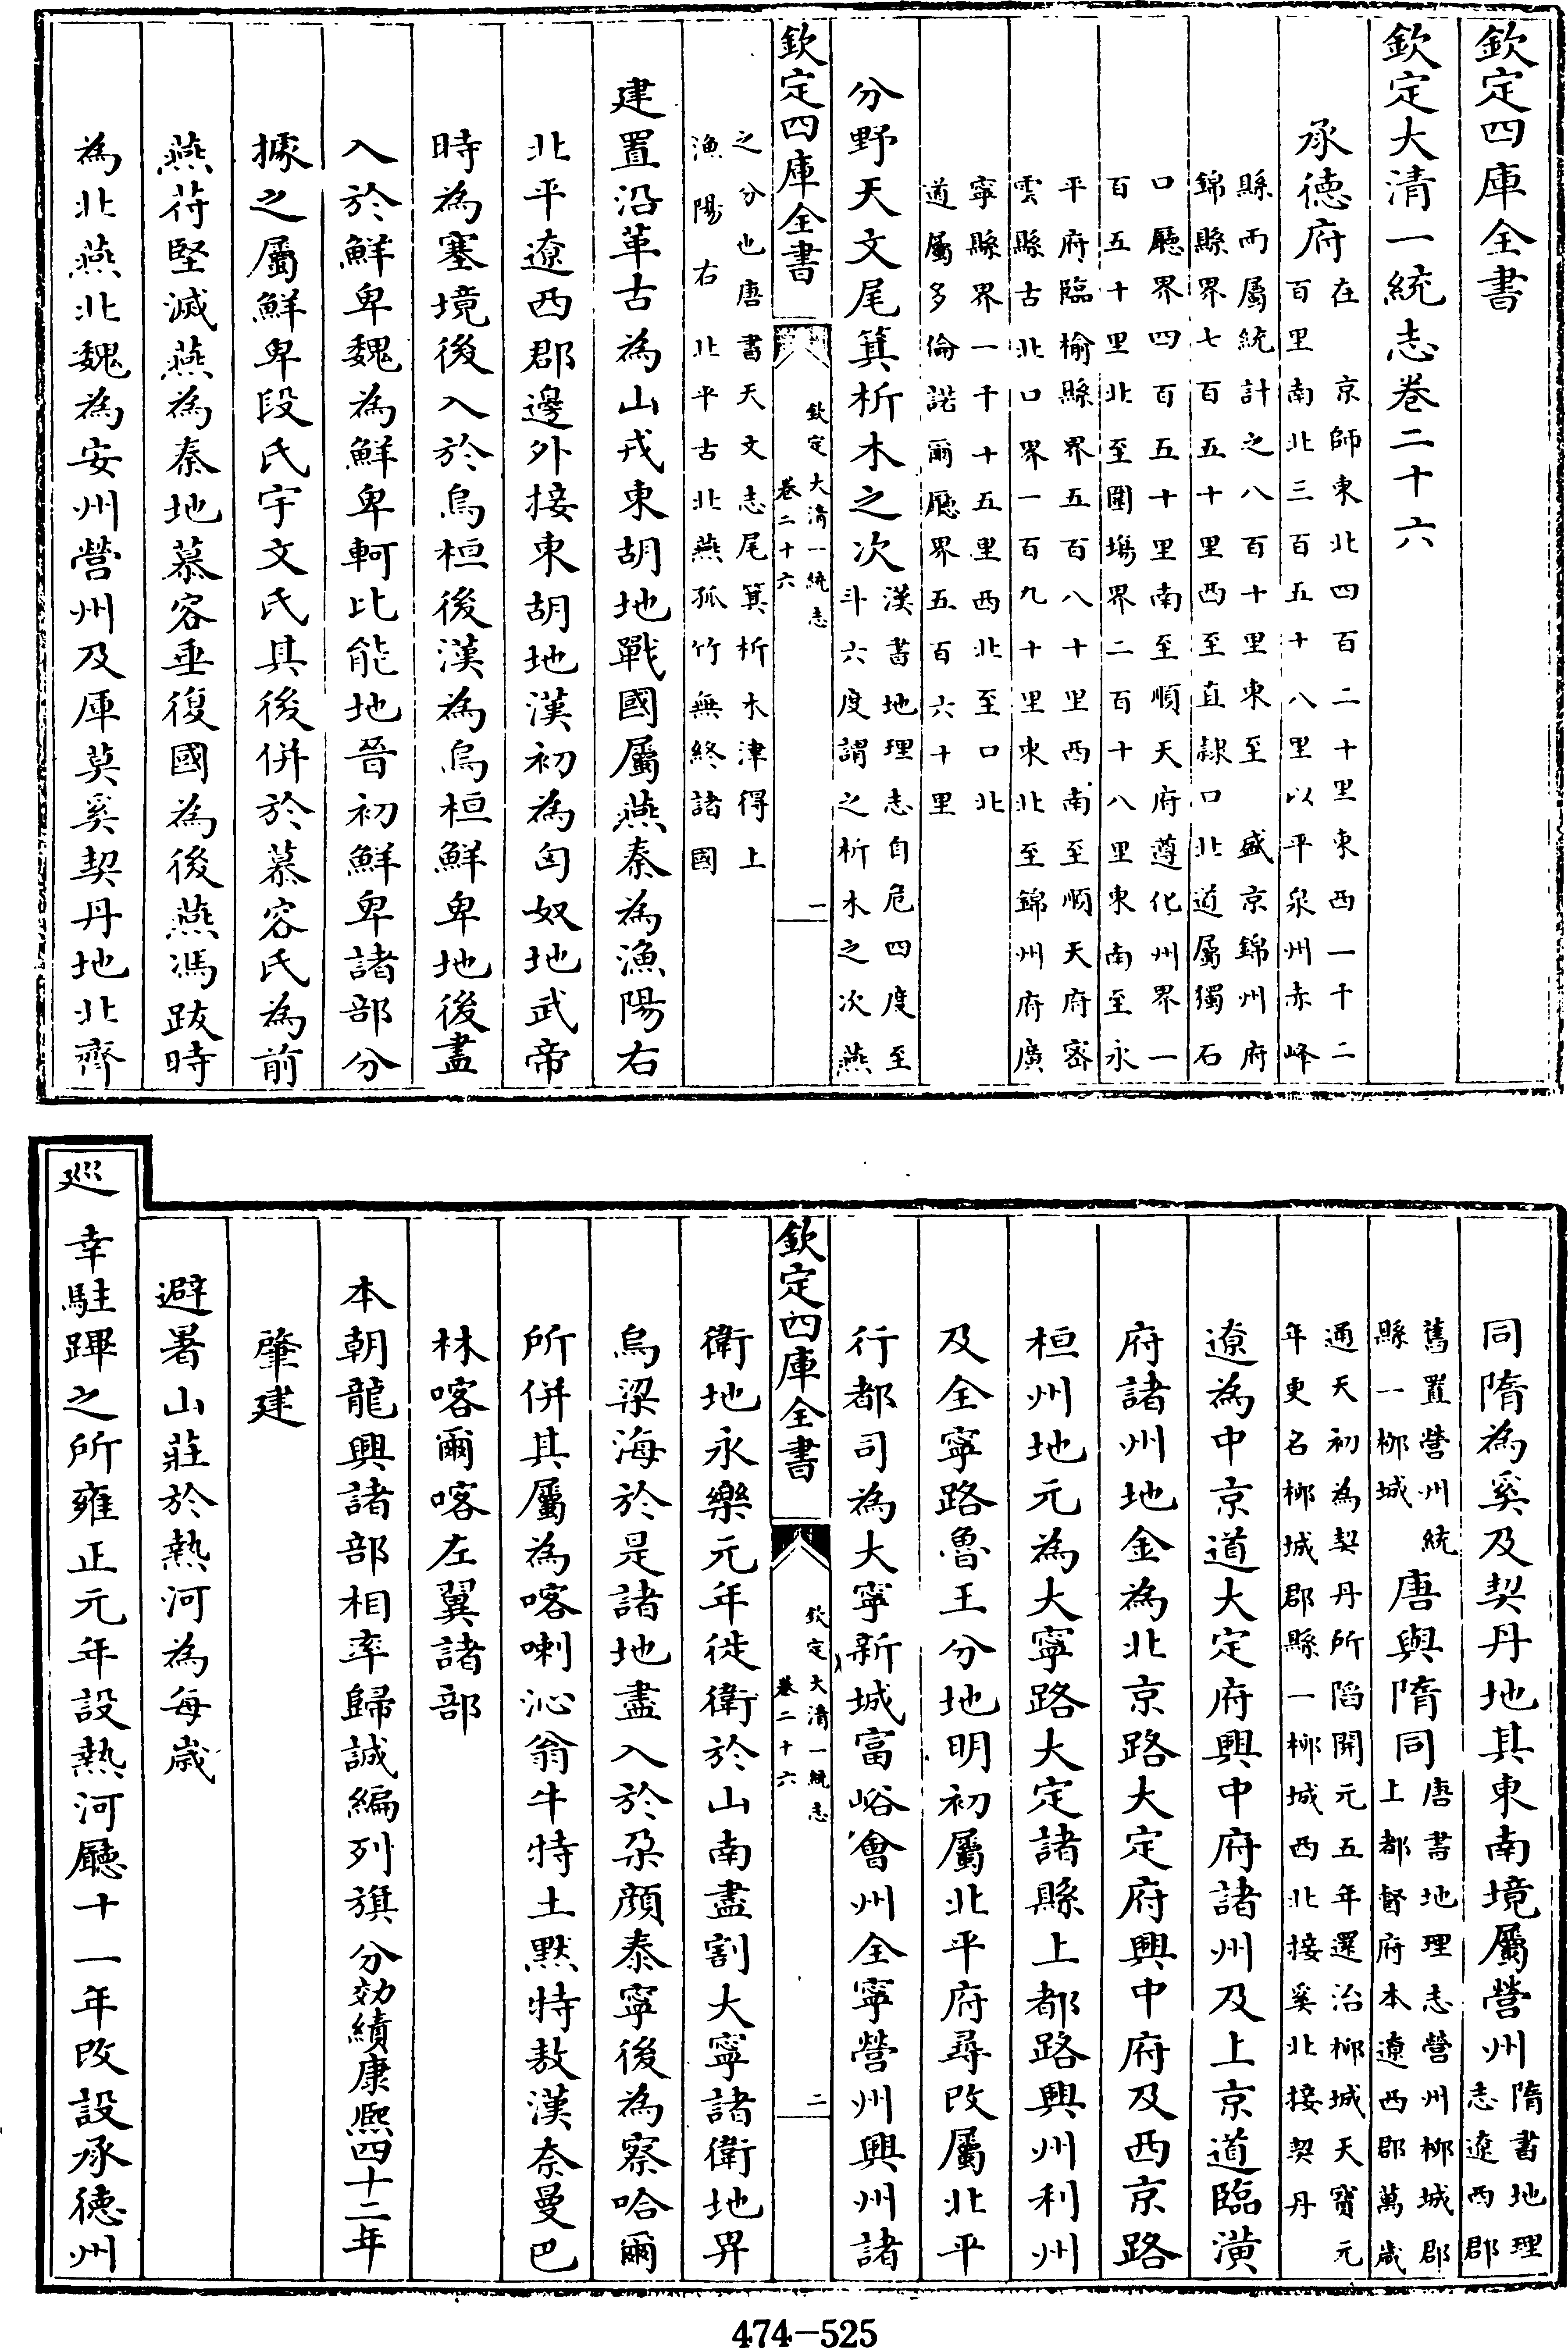 欽定四庫全書
欽定大清一統志卷二十六
承德府
在　京師東北四百二十里東西一千二
百里南北三百五十八里以平泉州赤峰
縣而屬統計之八百十里東至　盛京錦州府
錦縣界七百五十里西至直隸口北道屬獨石
口廳界四百五十里南至順天府遵化州界一
百五十里北至圍場界二百十八里東南至永
平府臨榆縣界五百八十里西南至順天府密
雲縣古北口界一百九十里東北至錦州府廣
寧縣界一千十五里西北至口北
道屬多倫諾爾廳界五百六十里
分野天文尾箕析木之次
漢書地理志自危四度至
斗六度謂之析木之次燕
欽定四庫全書
欽定大清一統志
卷二十六
一
之分也唐書天文志尾箕析木津得上
漁陽右北平古北燕孤竹無終諸國
建置沿革古為山戎東胡地戰國屬燕秦為漁陽右
北平遼西郡邊外接東胡地漢初為匈奴地武帝
時為塞境後入於烏桓後漢為烏桓鮮卑地後盡
入於鮮卑魏為鮮卑軻比能地晉初鮮卑諸部分
據之屬鮮卑段氏宇文氏其後併於慕容氏為前
燕苻堅滅燕為秦地慕容垂復國為後燕馮跋時
為北燕北魏為安州營州及庫莫奚契丹地北齊
同隋為奚及契丹地其東南境屬營州
隋書地理
志遼西郡
舊置營州統
縣一柳城
唐與隋同
唐書地理志營州柳城郡
上都督府本遼西郡萬歲
通天初為契丹所陷開元五年還治柳城天寶元
年更名柳城郡縣一柳城西北接奚北接契丹
遼為中京道大定府興中府諸州及上京道臨潢
府諸州地金為北京路大定府興中府及西京路
桓州地元為大寧路大定諸縣上都路興州利州
及全寧路魯王分地明初屬北平府尋改屬北平
行都司為大寧新城富峪會州全寧營州興州諸
欽定四庫全書
欽定大清一統志
卷二十六
二
衛地永樂元年徙衛於山南盡割大寧諸衛地畀
烏梁海於是諸地盡入於朶顏泰寧後為察哈爾
所併其屬為喀喇沁翁牛特土默特敖漢奈曼巴
林喀爾喀左翼諸部
本朝龍興諸部相率歸誠編列旗分効績康熙四十二年
肇建
避暑山莊於熱河為每歲
巡幸駐蹕之所雍正元年設熱河廳十一年改設承德州
474-525